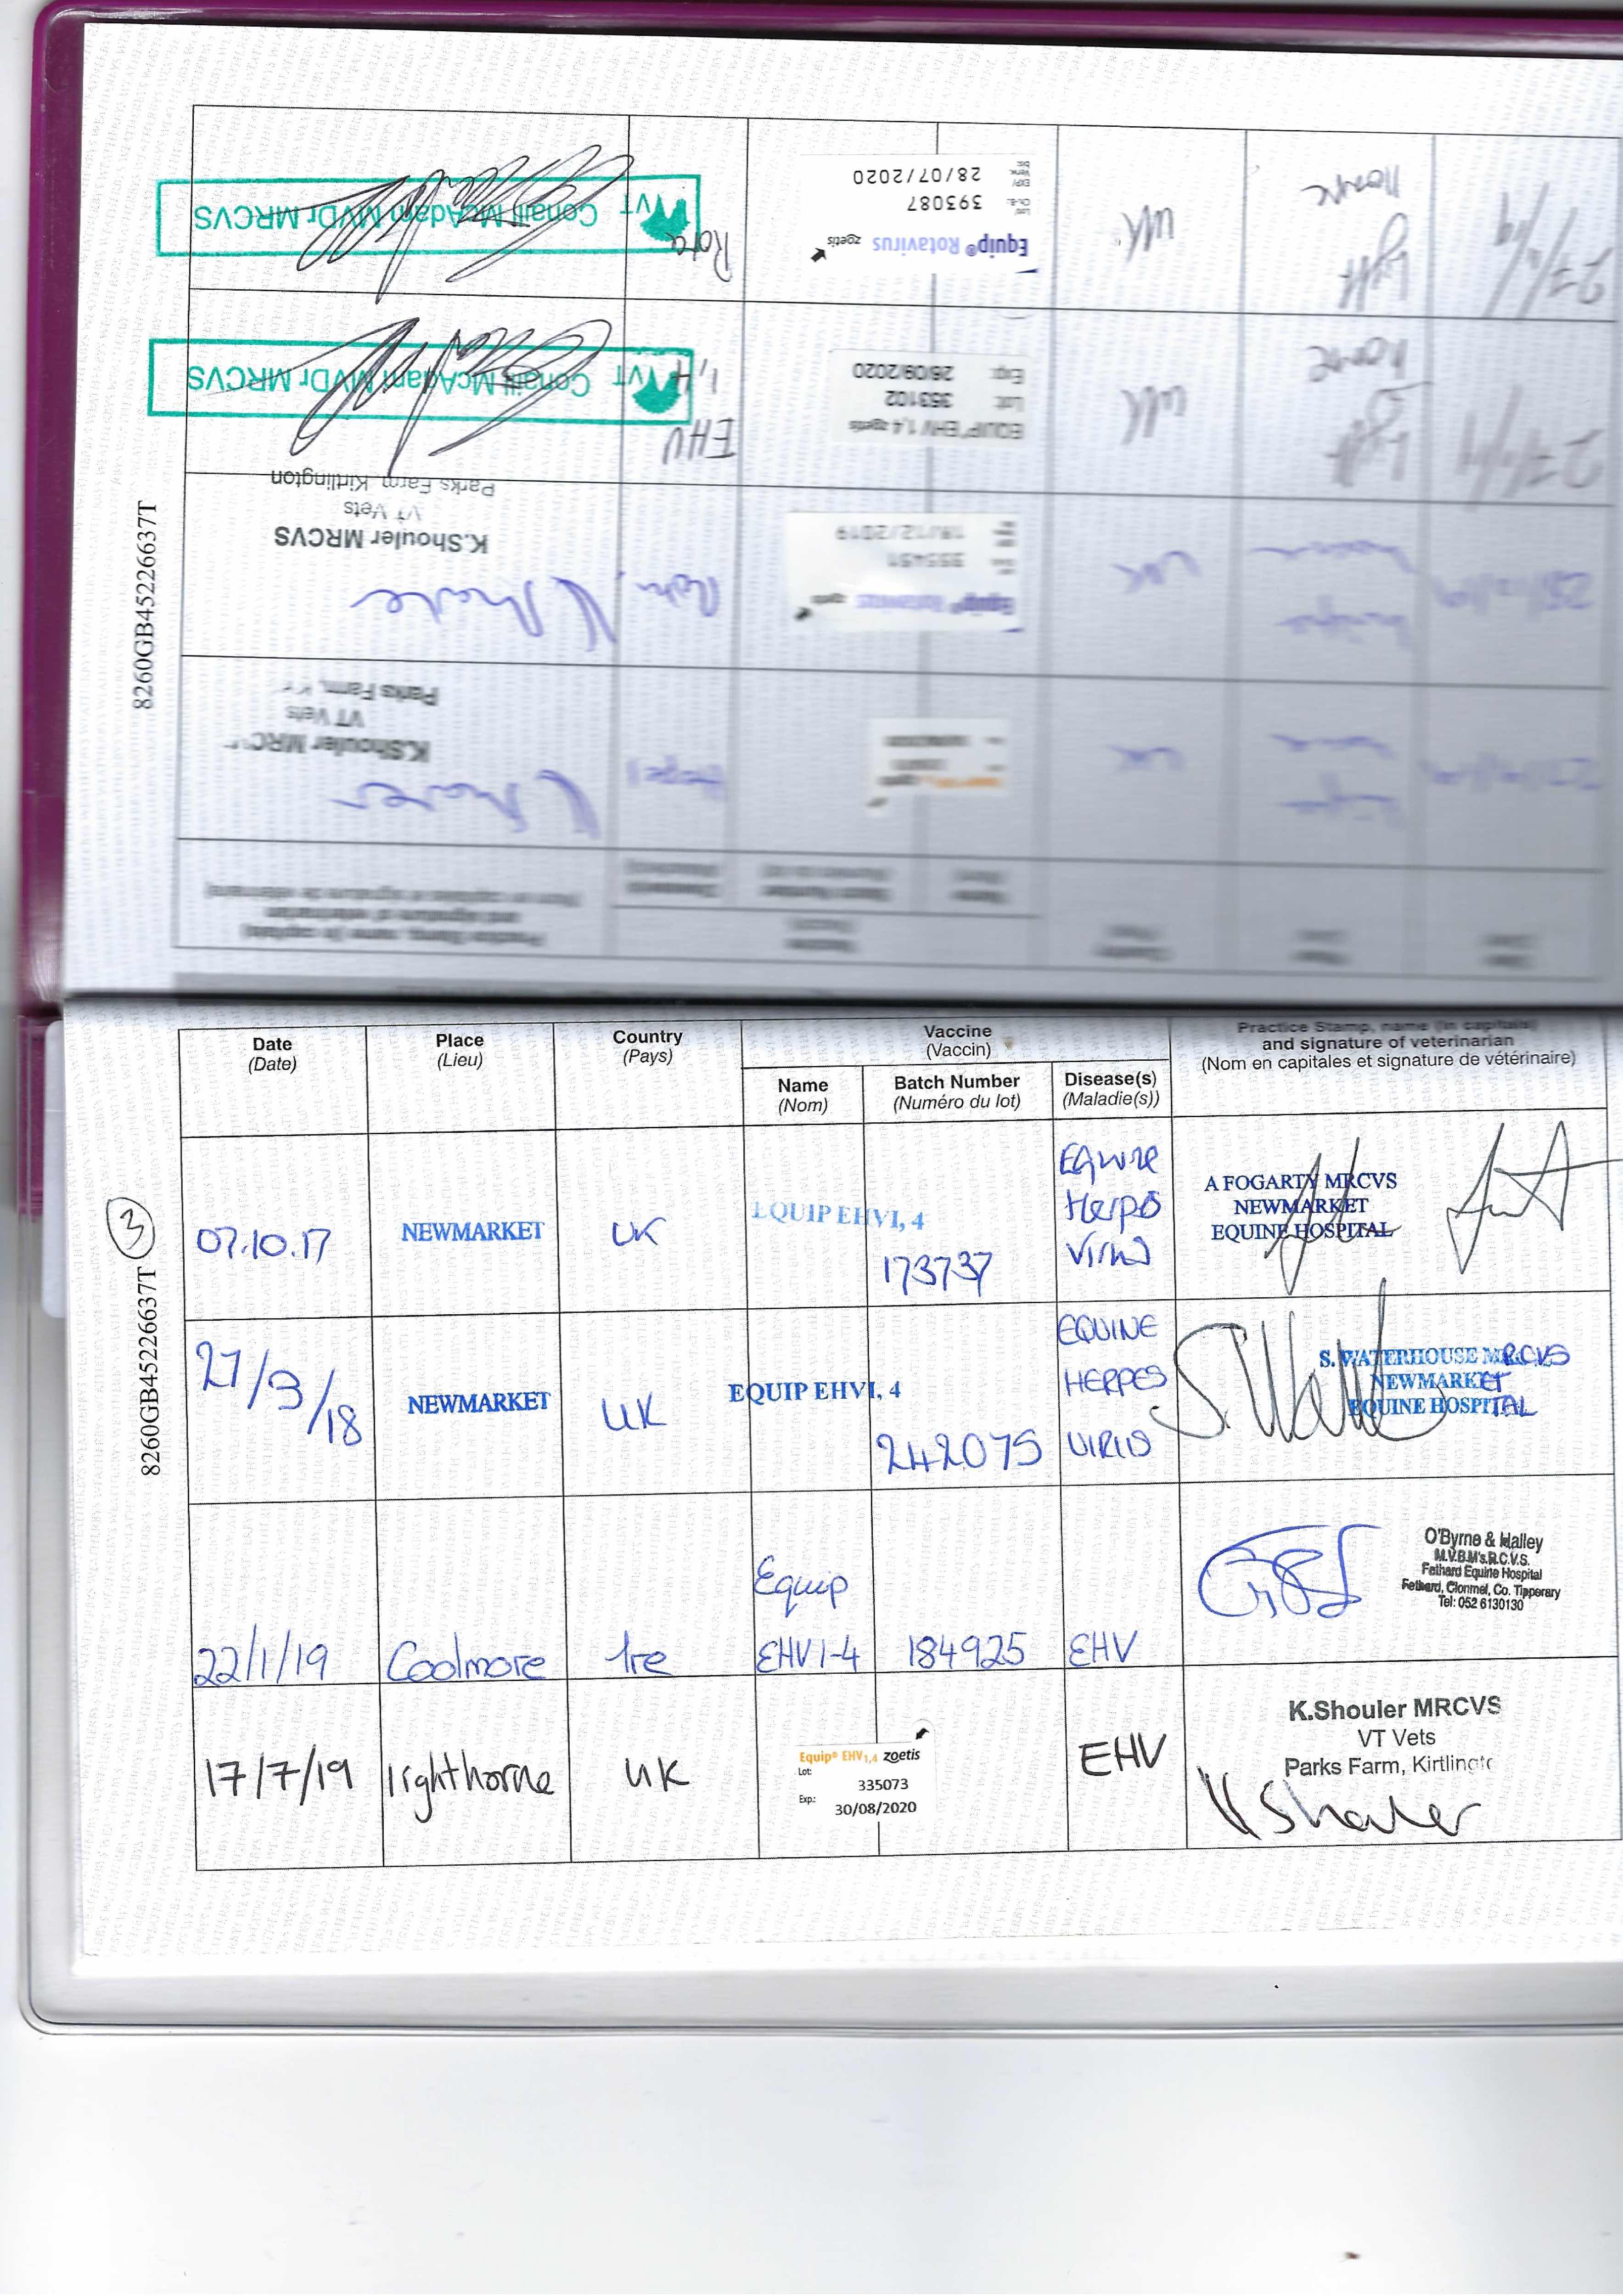 8260GB45226637T
Date
(Date)
Place
(Lieu)
Country
(Pays)
Vaccine
(Vaccin)
Name
(Nom)
Batch Number
(Numéro du lot)
Disease(s)
(Maladie(s))
Practice Stamp, name (in capitals)
and signature of veterinarian
(Nom en capitales et signature de vétérinaire)
3
8260GB45226637T
07.10.17
NEWMARKET
UK
EQUIP EHV1, 4
173737
Equine
Herpes
Virus
A FOGARTY MRCVS
NEWMARKET
EQUINE HOSPITAL
27/3/18
NEWMARKET
UK
EQUIP EHV1, 4
242075
EQUINE
HERPES
VIRUS
S. WATERHOUSE MRCVS
NEWMARKET
EQUINE HOSPITAL
22/1/19
Coolmore
Ire
Equip
EHV 1-4
184925
EHV
O'Byrne & Halley
M.V.B.M's.R.C.V.S.
Fethard Equine Hospital
Fethard, Clonmel, Co. Tipperary
Tel: 052 6130130
17/7/19
lighthorne
UK
Equip® EHV1,4 zoetis
Lot:
335073
Exp:
30/08/2020
EHV
K.Shouler MRCVS
VT Vets
Parks Farm, Kirtlingto
K Shouler
Practice Stamp, name (in capitals)
and signature of veterinarian
(Nom en capitales et signature de vétérinaire)
UK
K.Shouler MRCV
VT Vets
Parks Farm, K
UK
Equip® Rotavirus zoetis
355451
19/12/2019
Rota
K.Shouler MRCVS
VT Vets
Parks Farm, Kirtlington
Light
horne
UK
EQUIP® EHV 1,4 zoetis
Lot: 353102
Exp: 26/09/2020
EHV
1,4
VT Conaill McAdam MVDr MRCVS
Light
horne
UK
Equip® Rotavirus zoetis
393087
28/07/2020
Rota
VT Conaill McAdam MVDr MRCVS